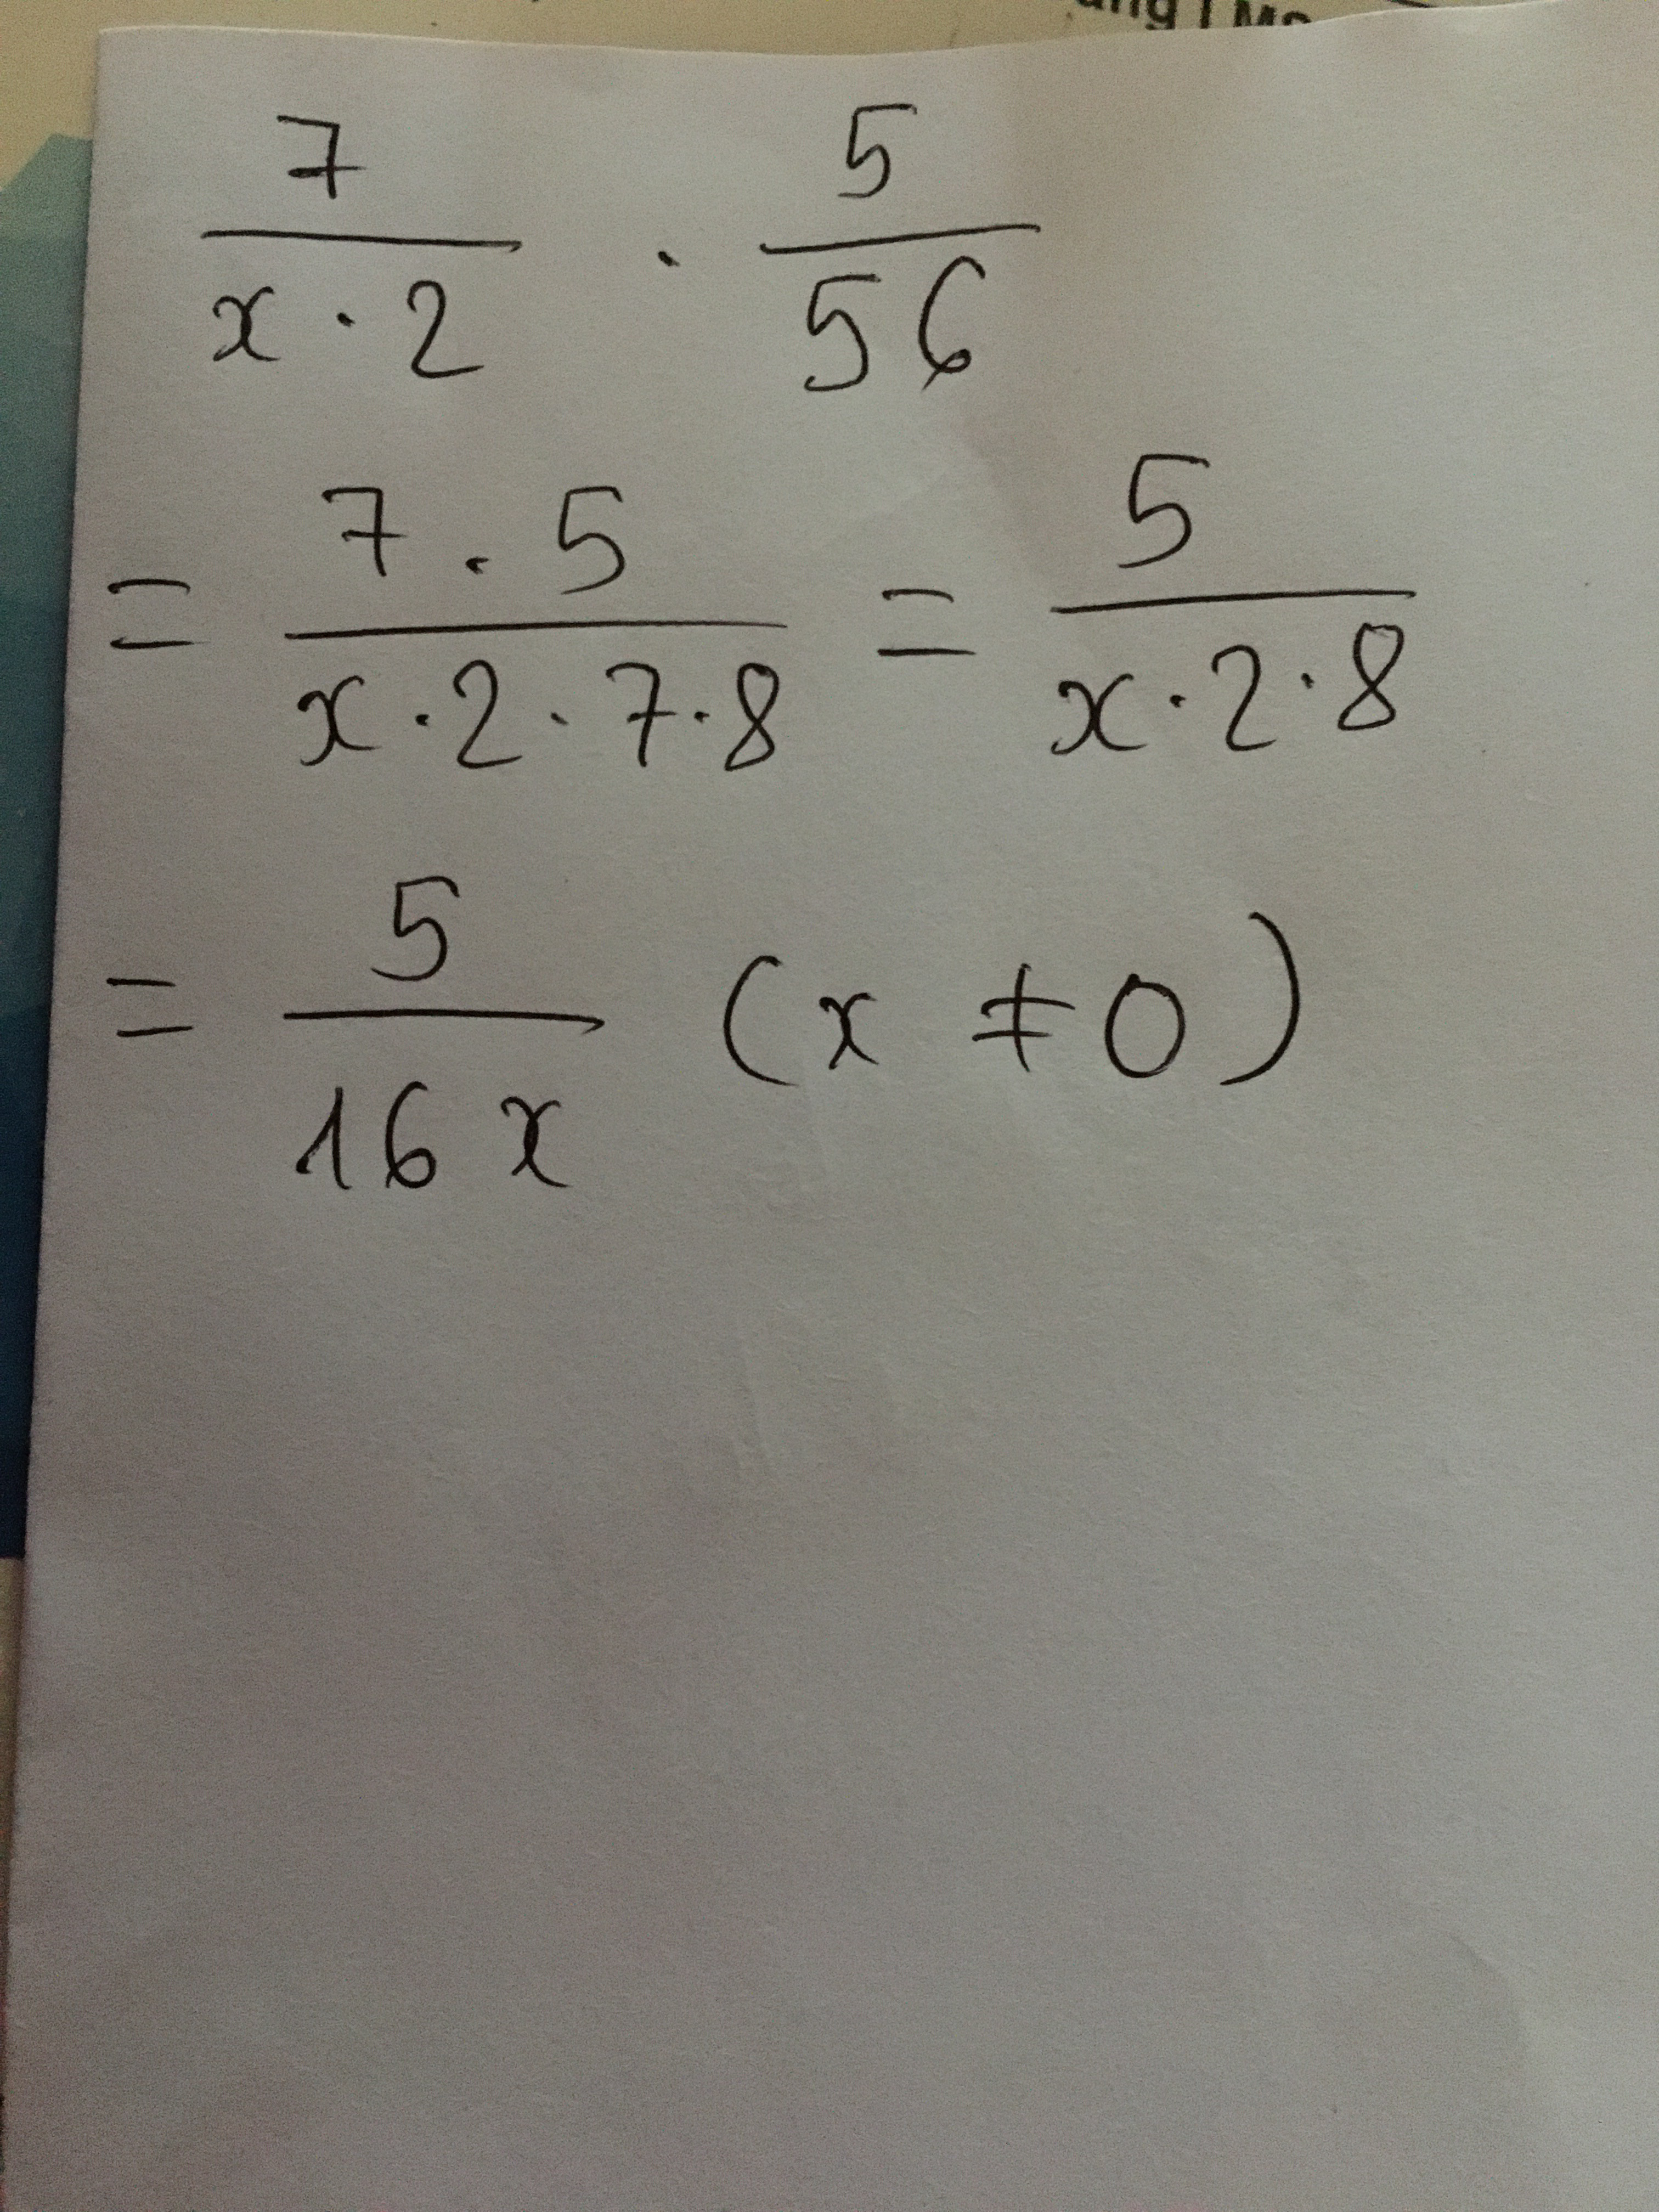 7/(x · 2) · 5/56
= (7 · 5)/(x · 2 · 7 · 8) = 5/(x · 2 · 8)
= 5/(16 x) (x ≠ 0)